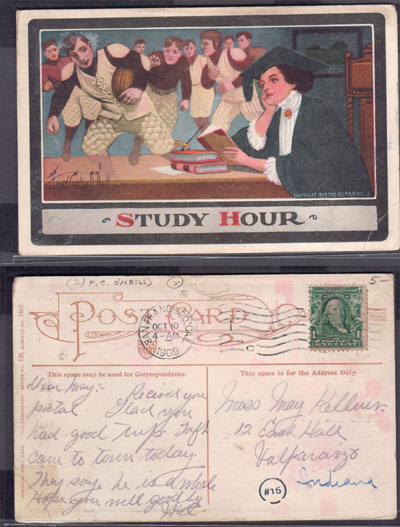 STUDY HOUR
(2) F.C. O'NEILL
5-
POST CARD
SAN FRANCISCO, CAL.
OCT 10
4-AM
1909
This space may be used for Correspondence
This space is for the Address Only.
Dear May:- Received you
postal Glad you
had good trip. Taft
came to town today.
They say he is a whale
Hope you well good by
Miss May
12 East Hall
Valparaiso
Indiana
#15